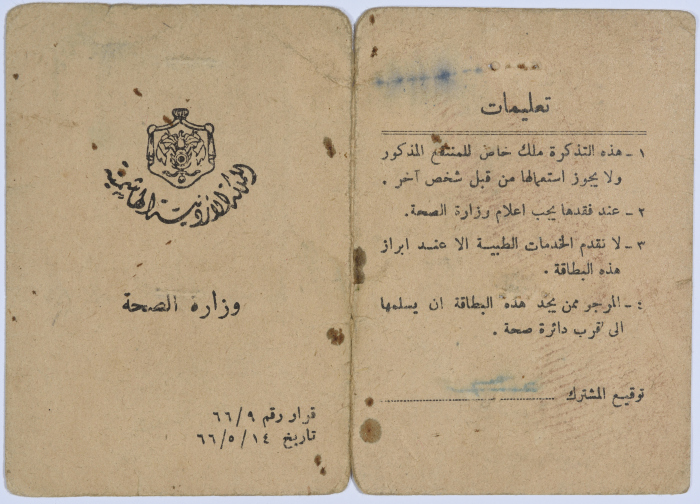 تعليمات
١ - هذه التذكرة ملك خاص للمنتفع المذكور
ولا يجوز استعمالها من قبل شخص آخر .
٢ - عند فقدها يجب اعلام وزارة الصحة.
٣ - لا تقدم الخدمات الطبية الا عند ابراز
هذه البطاقة .
٤ - المرجو ممن يجد هذه البطاقة ان يسلمها
الى اقرب دائرة صحة .
توقيع المشترك
المملكة الاردنية الهاشمية
وزارة الصحة
قرار رقم ٦٦/٩
تاريخ ٦٦/٥/١٤